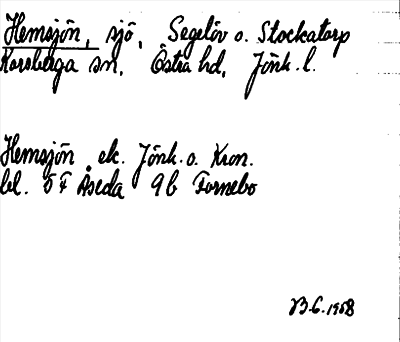 Hemsjön, sjö, Segelöv o. Stockatorp
Korsberga sn. Östra hd. Jönk. l.
Hemsjön ek. Jönk. o. Kron.
bl. 5 F Åseda 9b Fornebo
B.G. 1958